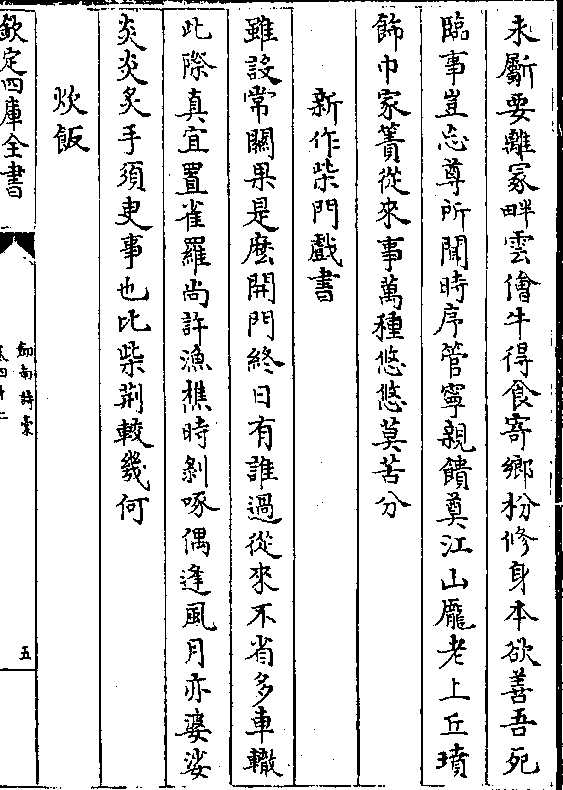 未斸要離冢畔雲儈牛得食寄鄉枌修身本欲善吾死
臨事豈忘尊所聞時序管寧親饋奠江山龎老上丘墳
飾巾家簀從來事萬種悠悠莫苦分
新作柴門戲書
雖設常關果是麽開門終日有誰過從來不省多車轍
此際真宜置雀羅尚許漁樵時剝啄偶逢風月亦婆娑
炎炎炙手須臾事也比柴荆較幾何
炊飯
欽定四庫全書
劍南詩稾
卷四十二
五